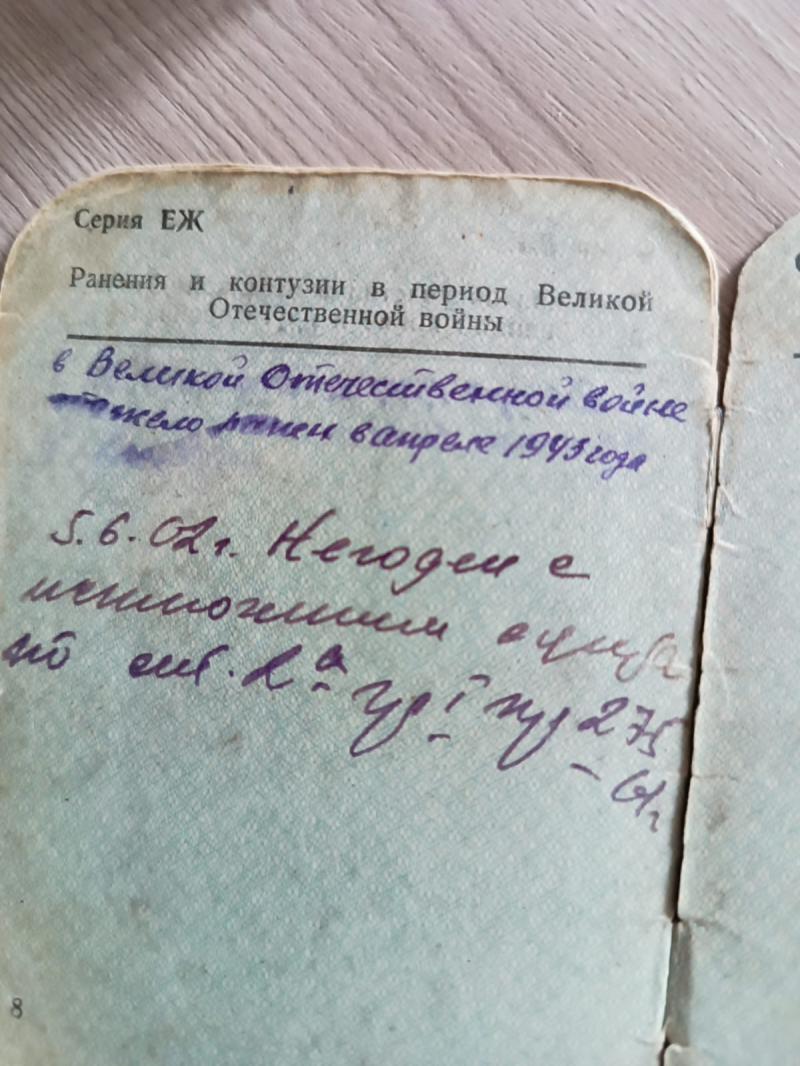 Серия ЕЖ
Ранения и контузии в период Великой
Отечественной войны
в Великой Отечественной войне
тяжело ранен в апреле 1943 года
5.6.02г. Негоден с
исключением с учета
по ст. 2а гр I пр 275
-61г
8